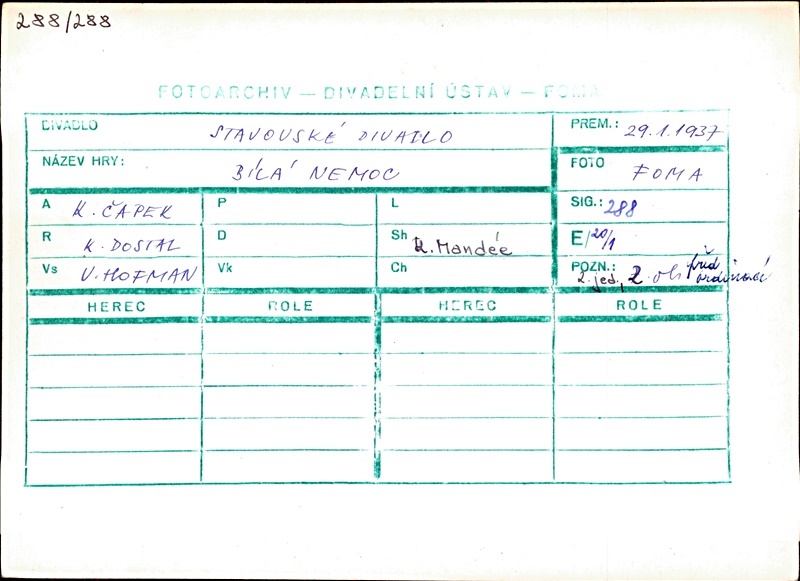 288/288
FOTOARCHIV — DIVADELNÍ ÚSTAV — FOMA
DIVADLO STAVOVSKÉ DIVADLO PREM.: 29.1.1937
NÁZEV HRY: BÍLÁ NEMOC FOTO FOMA
A K. ČAPEK P L SIG.: 288
R K. DOSTAL D Sh K. Mandée E/20/1
Vs V. HOFMAN Vk Ch POZN.: 2. jed., 2. ob před ordinací
HEREC ROLE HEREC ROLE